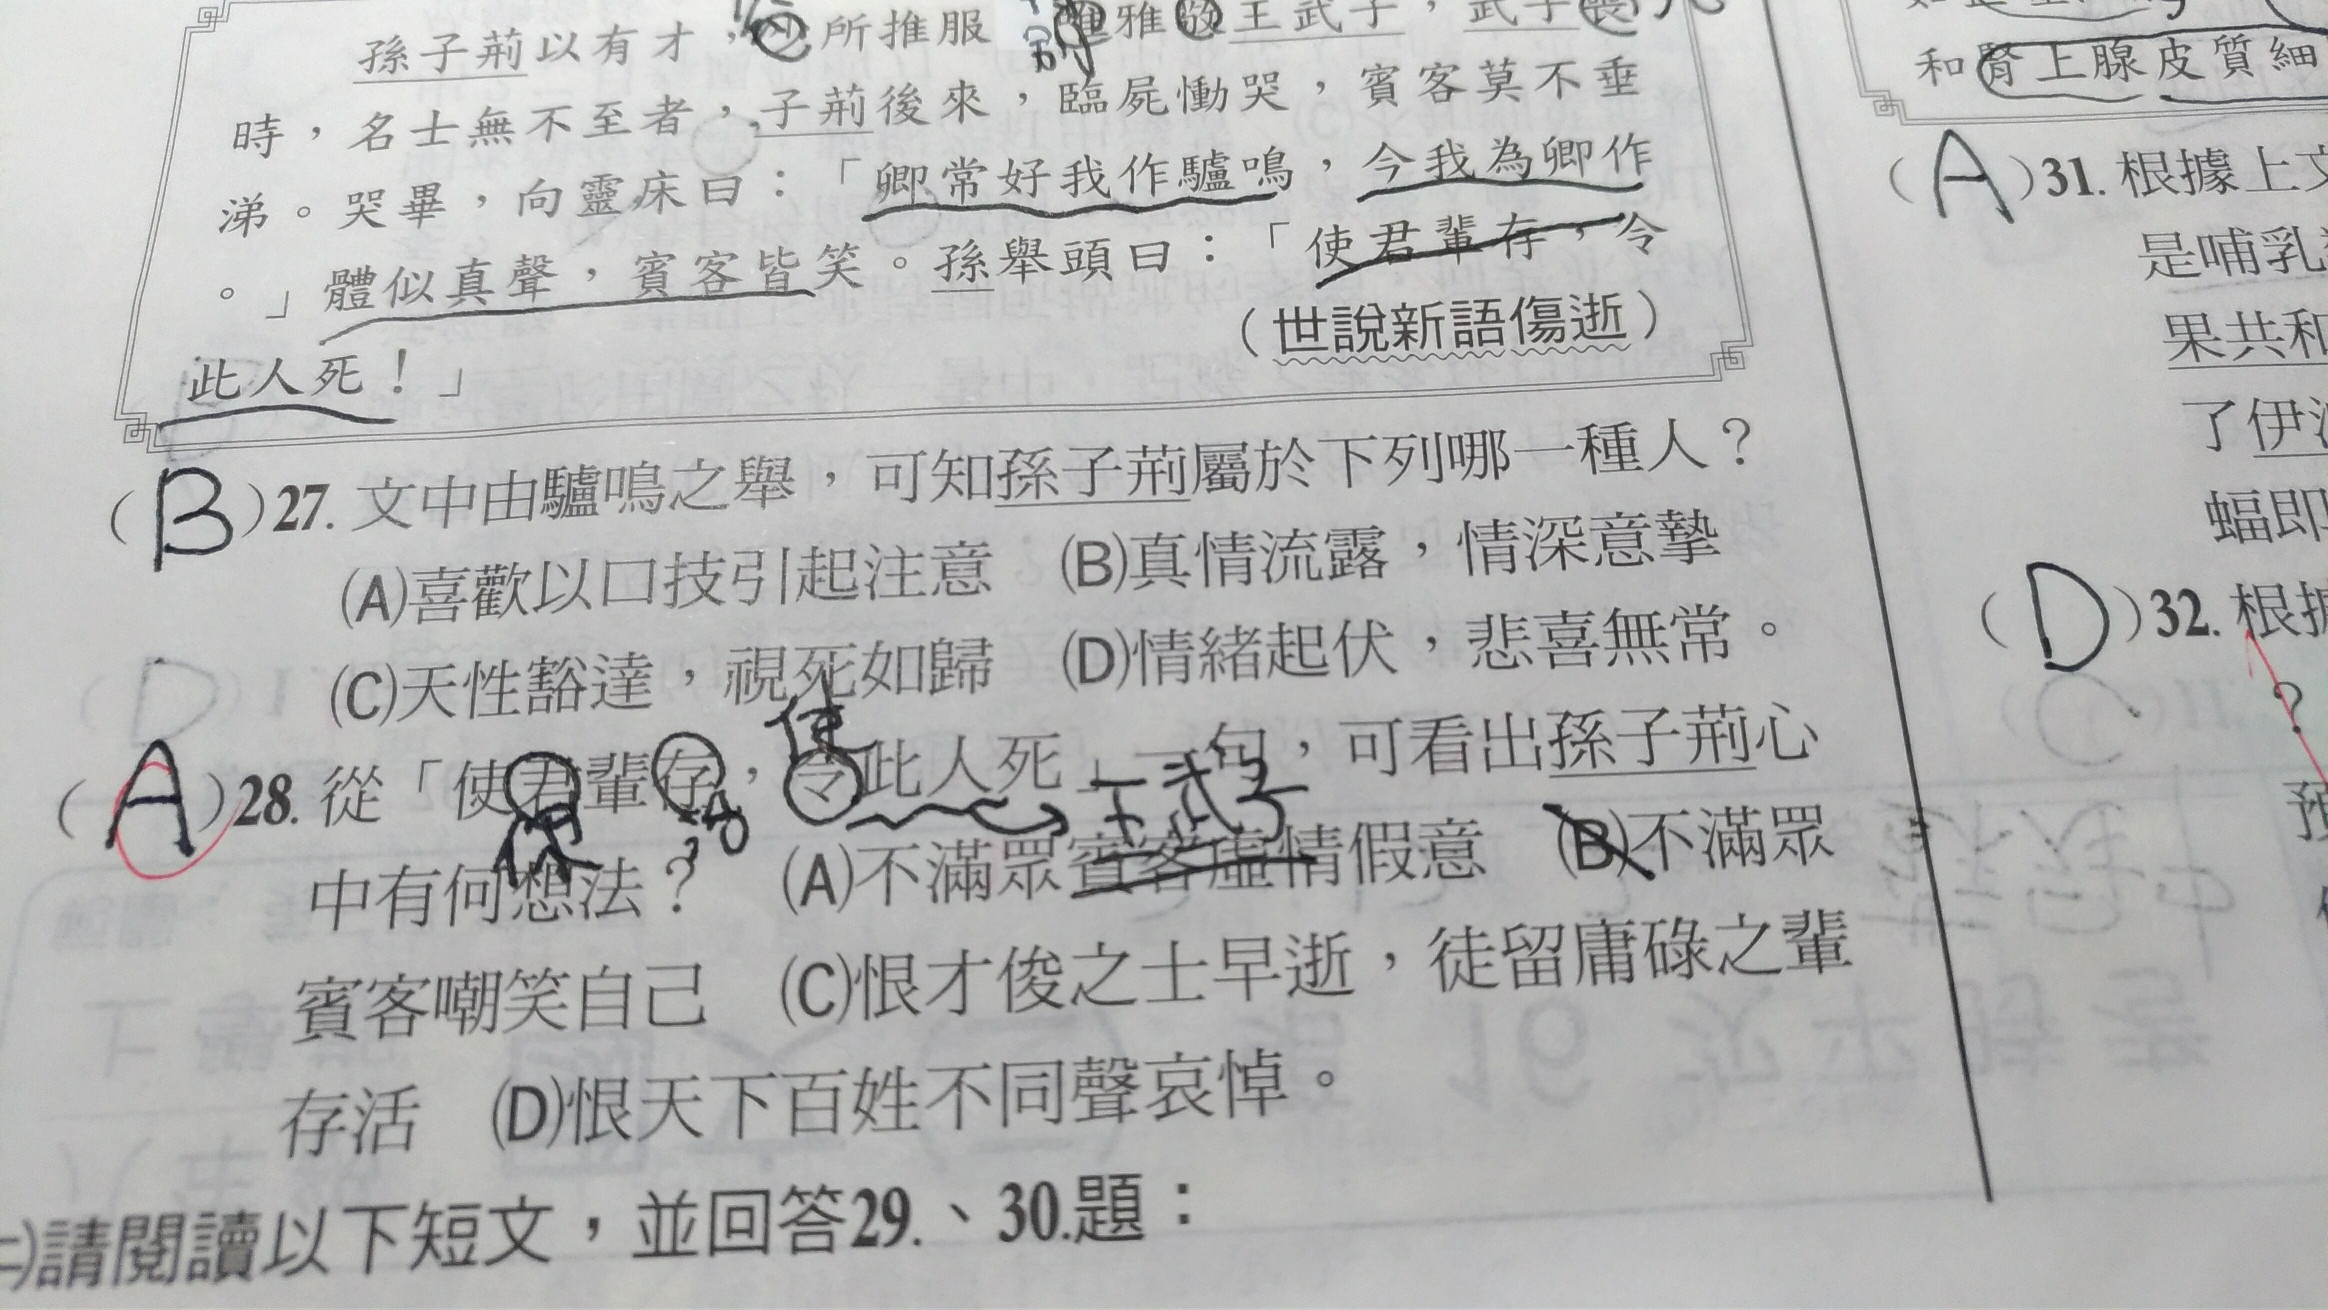 孫子荊以有才，所推服雅敬王武子，武子喪
時，名士無不至者，子荊後來，臨屍慟哭，賓客莫不垂
涕。哭畢，向靈床曰：「卿常好我作驢鳴，今我為卿作
。」體似真聲，賓客皆笑。孫舉頭曰：「使君輩存，令
此人死！」
（世說新語傷逝）
（B）27. 文中由驢鳴之舉，可知孫子荊屬於下列哪一種人？
(A)喜歡以口技引起注意 (B)真情流露，情深意摯
(C)天性豁達，視死如歸 (D)情緒起伏，悲喜無常。
使
（A）28. 從「使君輩存，令此人死」一句，可看出孫子荊心
王武子
中有何想法？ (A)不滿眾賓客虛情假意 (B)不滿眾
賓客嘲笑自己 (C)恨才俊之士早逝，徒留庸碌之輩
存活 (D)恨天下百姓不同聲哀悼。
㈡請閱讀以下短文，並回答29.、30.題：
和腎上腺皮質細
（A）31. 根據上文
是哺乳
果共和
了伊
蝠即
（D）32. 根據
？
預